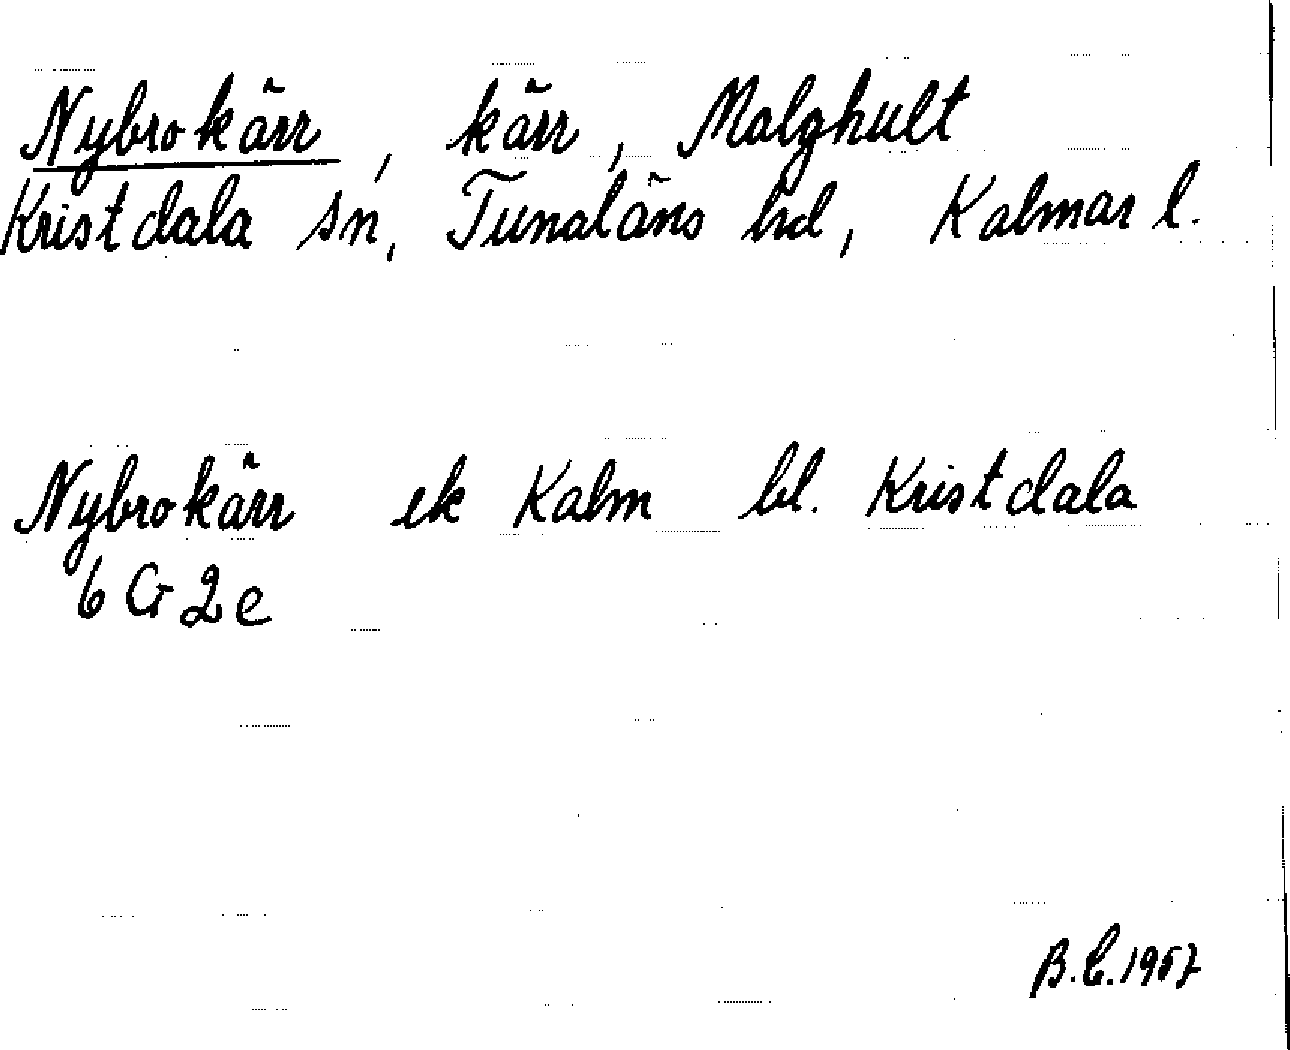 Nybrokärr, kärr, Malghult
Kristdala sn, Tunaläns hd, Kalmar l.
Nybrokärr ek Kalm bl. Kristdala
6 G 2 e
B.C. 1957